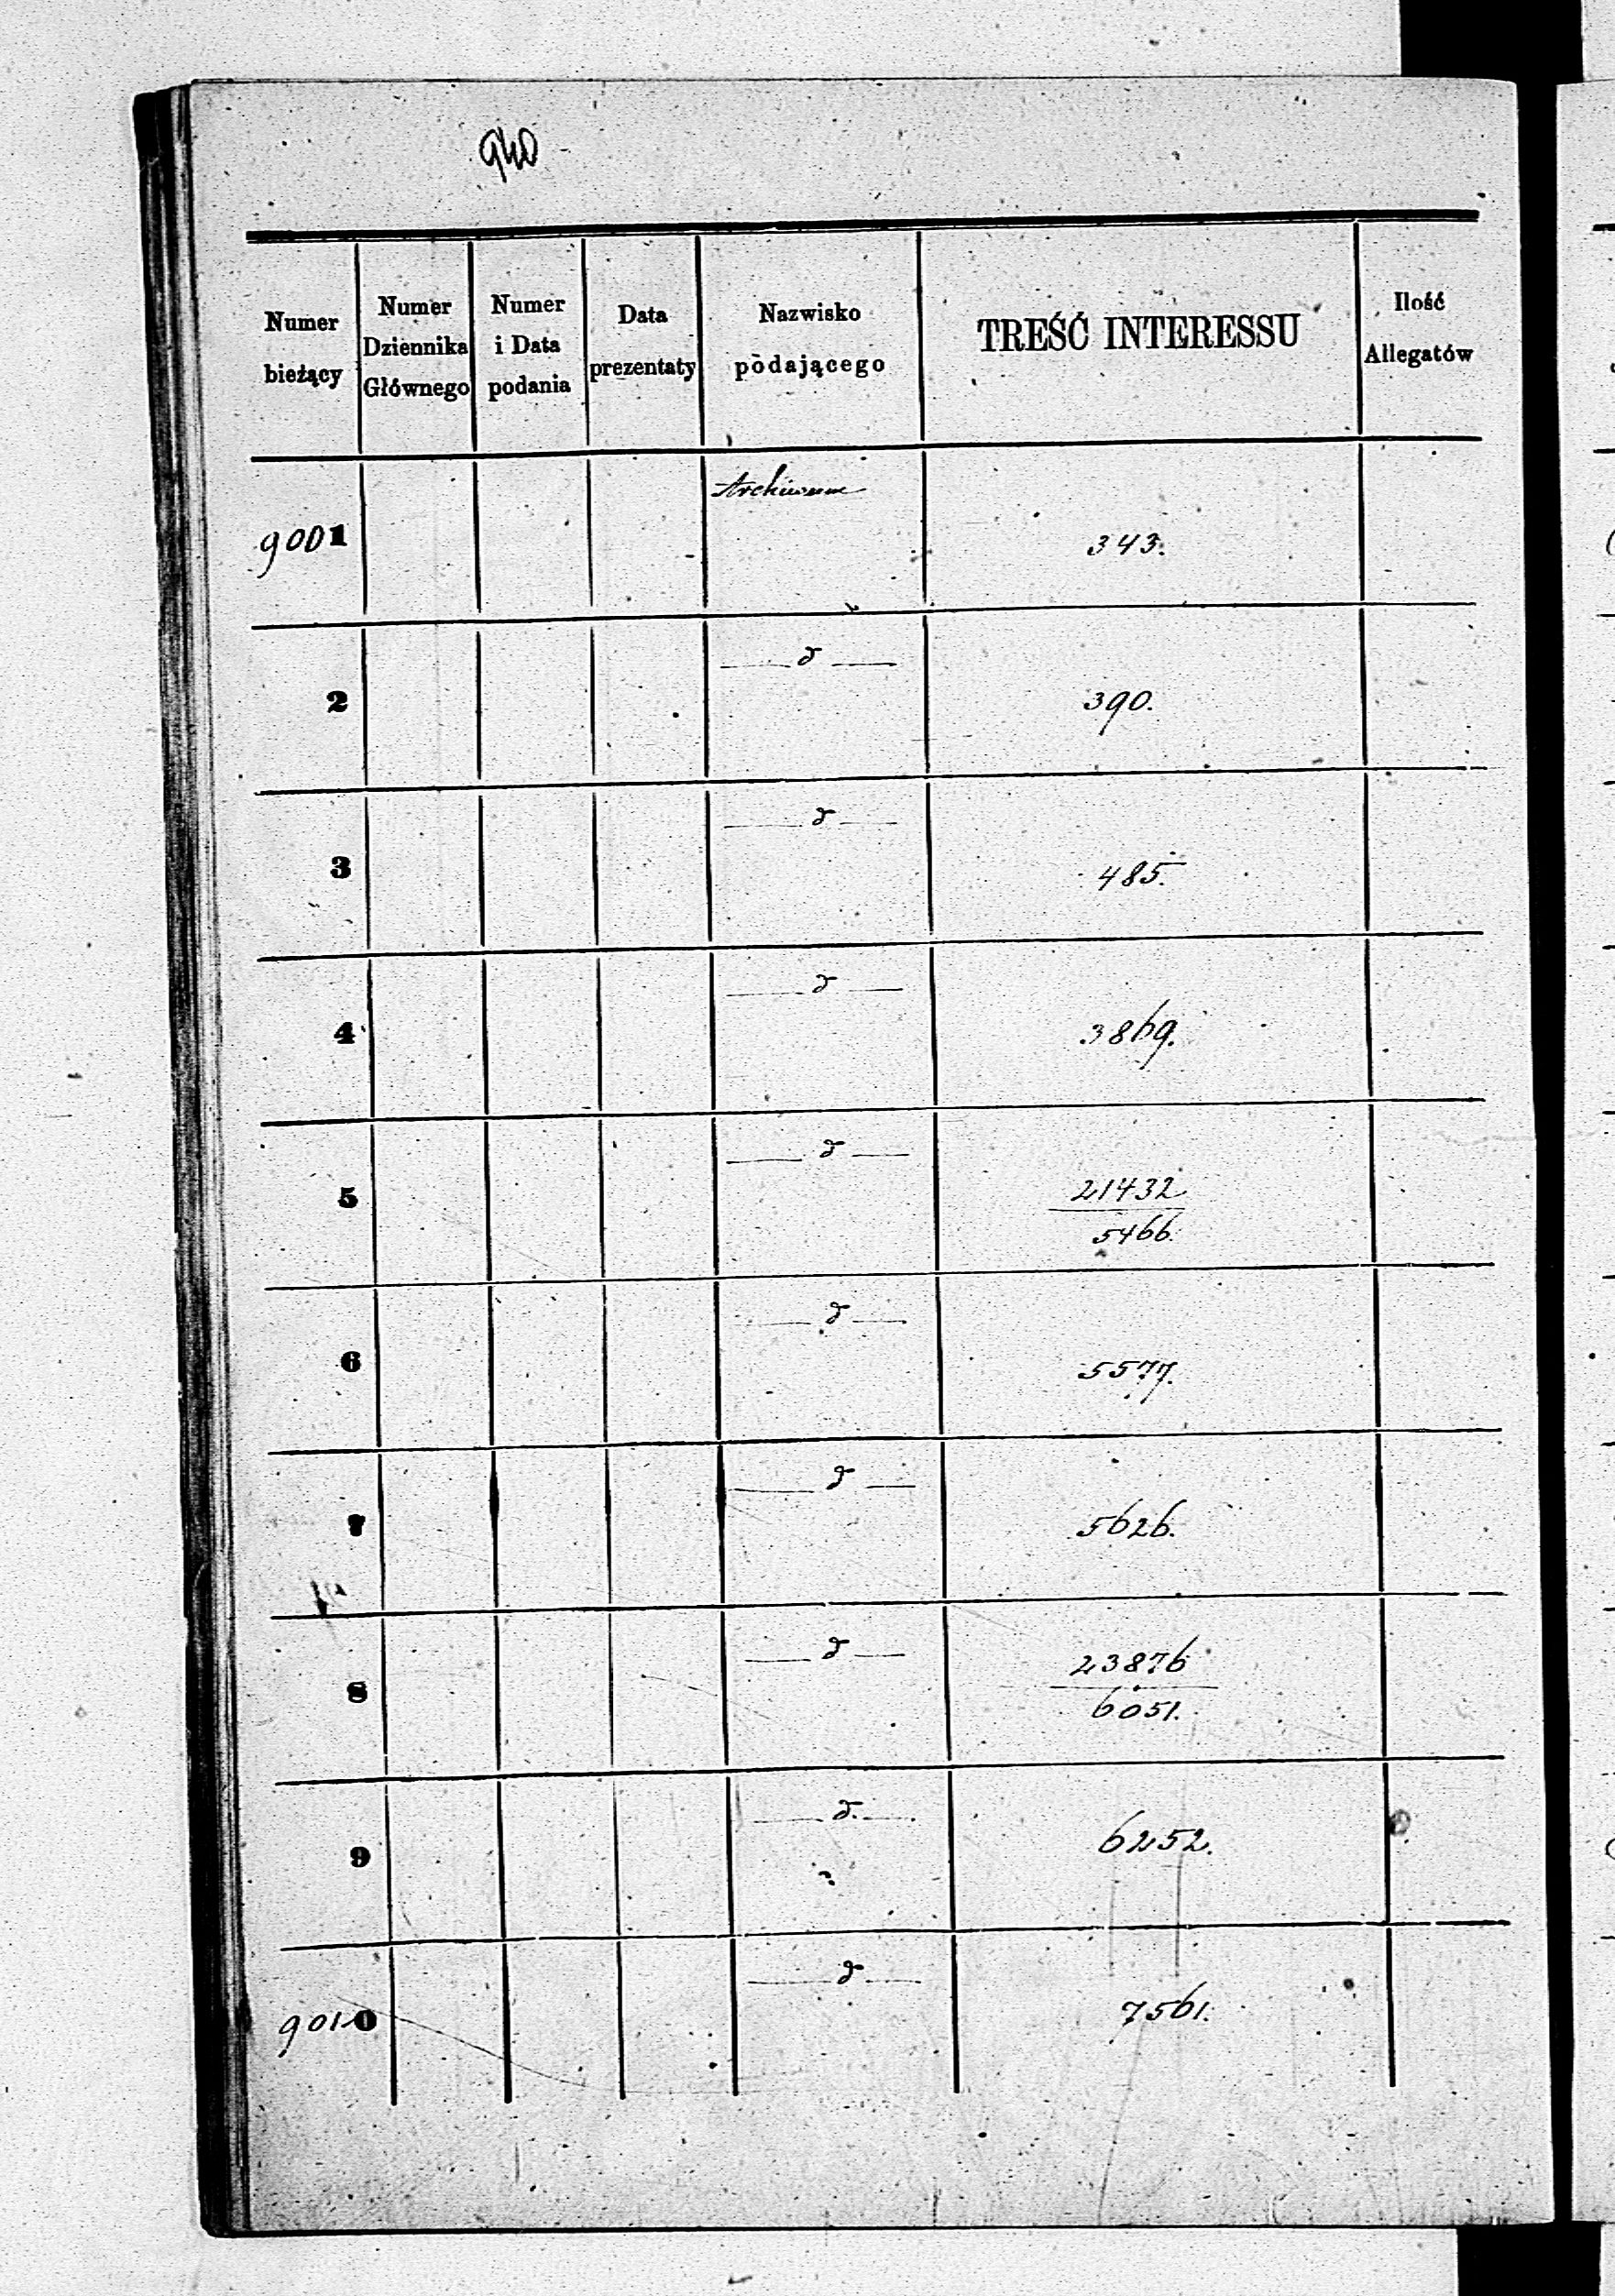 940
Numer bieżący
Numer Dziennika Głównego
Numer i Data podania
Data prezentaty
Nazwisko podającego
TREŚĆ INTERESSU
Ilość Allegatów
9001 Archiwum 343.
2 — d — 390.
3 — d — 485.
4 — d — 3869.
5 — d — 21432
5466.
6 — d — 5577.
7 — d — 5626.
8 — d — 23876
6051.
9 — d. — 6252.
9010 — d — 7561.